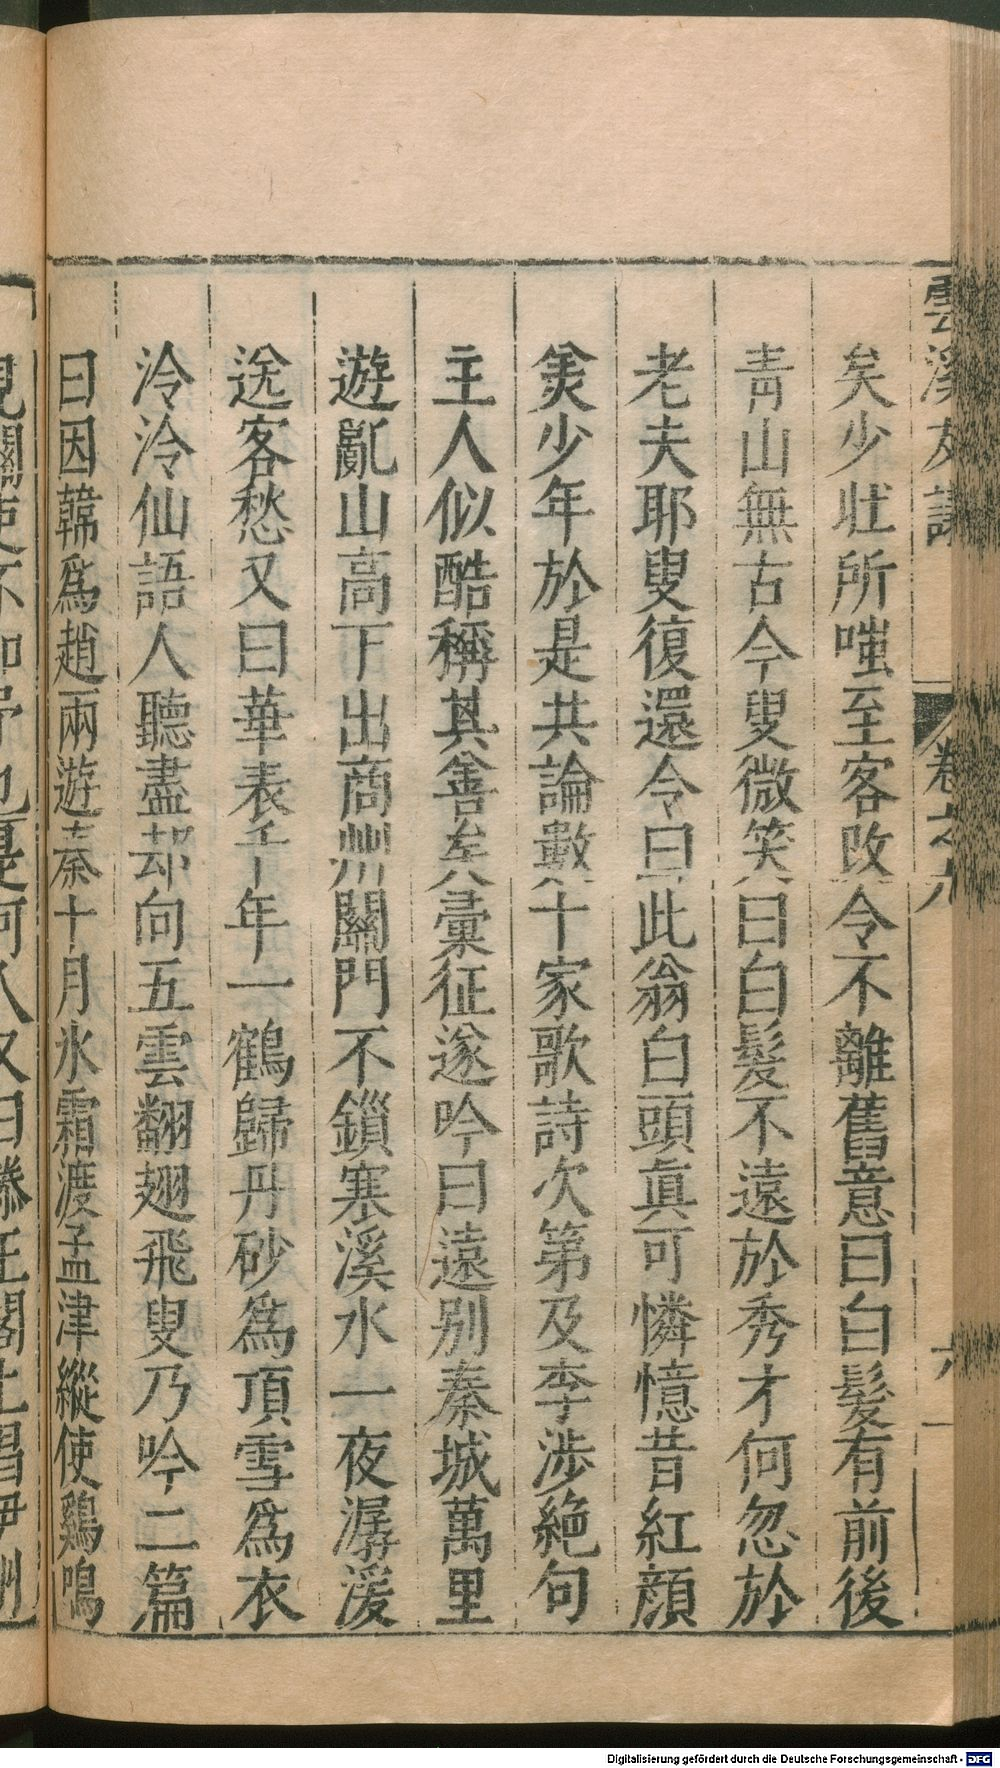 雲溪友議 卷之九 六
矣少壯所嗤至客改令不離舊意曰白髮有前後
青山無古今叟微笑曰白髮不遠於秀才何忽於
老夫耶叟復還令曰此翁白頭眞可憐憶昔紅顔
美少年於是共論數十家歌詩次第及李涉絶句
主人似酷稱其善矣彙征遂吟曰遠別秦城萬里
遊亂山高下出商州關門不鎖寒溪水一夜潺湲
送客愁又曰華表千年一鶴歸丹砂爲頂雪爲衣
泠泠仙語人聽盡却向五雲翻翅飛叟乃吟二篇
曰因韓爲趙兩遊秦十月氷霜渡孟津縱使鷄鳴
見關吏不知予也是何人又曰滕王閣上唱伊州
Digitalisierung gefördert durch die Deutsche Forschungsgemeinschaft - DFG